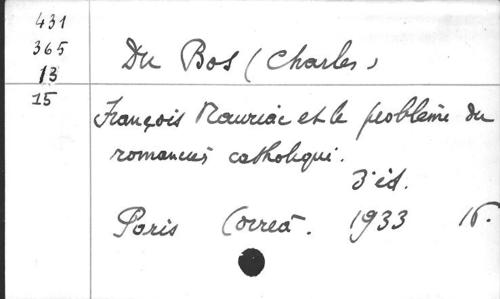 431
365
13
15
Du Bos (Charles)
François Mauriac et le problème du
romancier catholique.
3e éd.
Paris Correa. 1933 16.